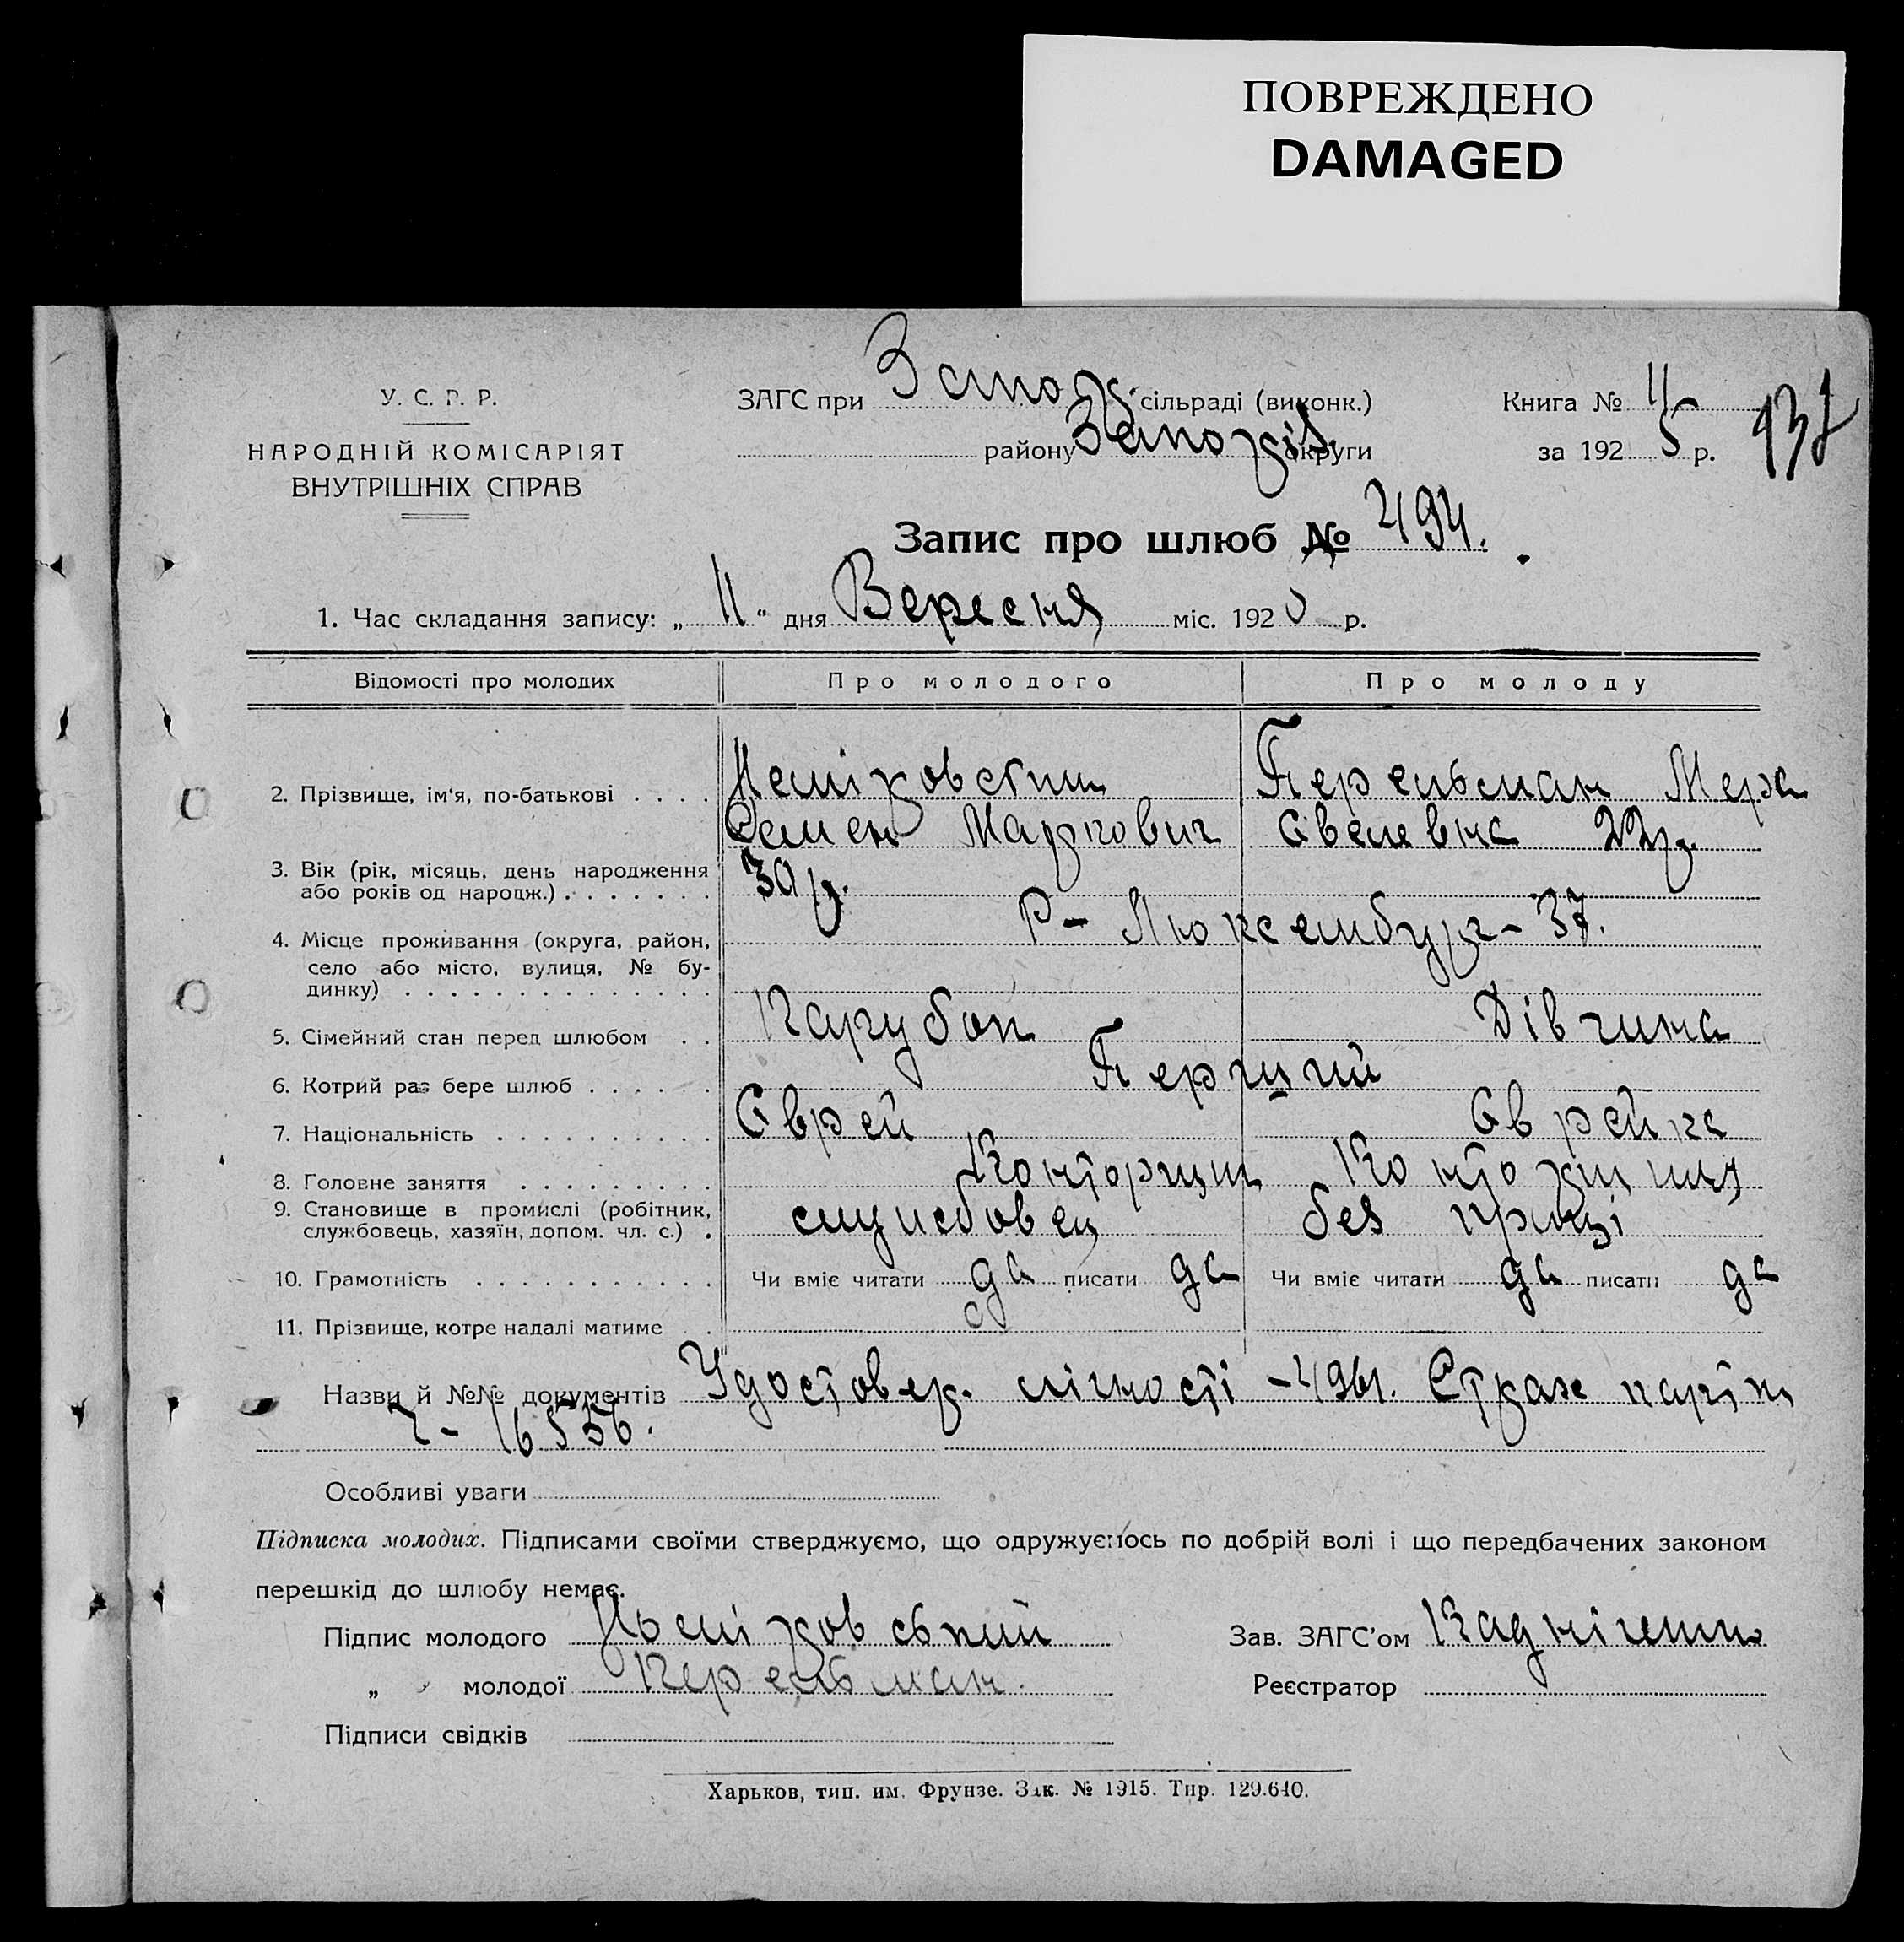 ПОВРЕЖДЕНО
DAMAGED
У. С. Р. Р.
НАРОДНІЙ КОМІСАРІЯТ
ВНУТРІШНІХ СПРАВ
ЗАГС при Запож. сільраді (виконк.)
району Запоріз. округи
Книга № 11
за 1925 р.
Запис про шлюб № 494.
1. Час складання запису: „ 11 “ дня Вересня міс. 1925 р.
Відомості про молодих Про молодого Про молоду
2. Прізвище, ім'я, по-батькові . . . . Перельман Мера
Семен Маркович 22р.
3. Вік (рік, місяць, день народження
або років од народж.) . . . . . . . 30р.
4. Місце проживання (округа, район, Р- Люксембург- 37.
село або місто, вулиця, № бу-
динку) . . . . . . . . . . . . . .
5. Сімейний стан перед шлюбом . . Парубок Дівчина
6. Котрий раз бере шлюб . . . . . . Перший
7. Національність . . . . . . . . . . Єврей Єврейка
8. Головне заняття . . . . . . . . . Конторщик
9. Становище в промислі (робітник,
службовець, хазяїн, допом. чл. с.) . службовец без праці
10. Грамотність . . . . . . . . . . . Чи вміє читати да писати да Чи вміє читати да писати да
11. Прізвище, котре надалі матиме .
Назви й №№ документів Удостовер. лічності
16556.
Особливі уваги
Підписка молодих. Підписами своїми стверджуємо, що одружуємось по добрій волі і що передбачених законом
перешкід до шлюбу немає.
Підпис молодого Зав. ЗАГС'ом
„ молодої Перельман. Реєстратор
Підписи свідків
Харьков, тип. им. Фрунзе. Зак. № 1915. Тир. 129.640.